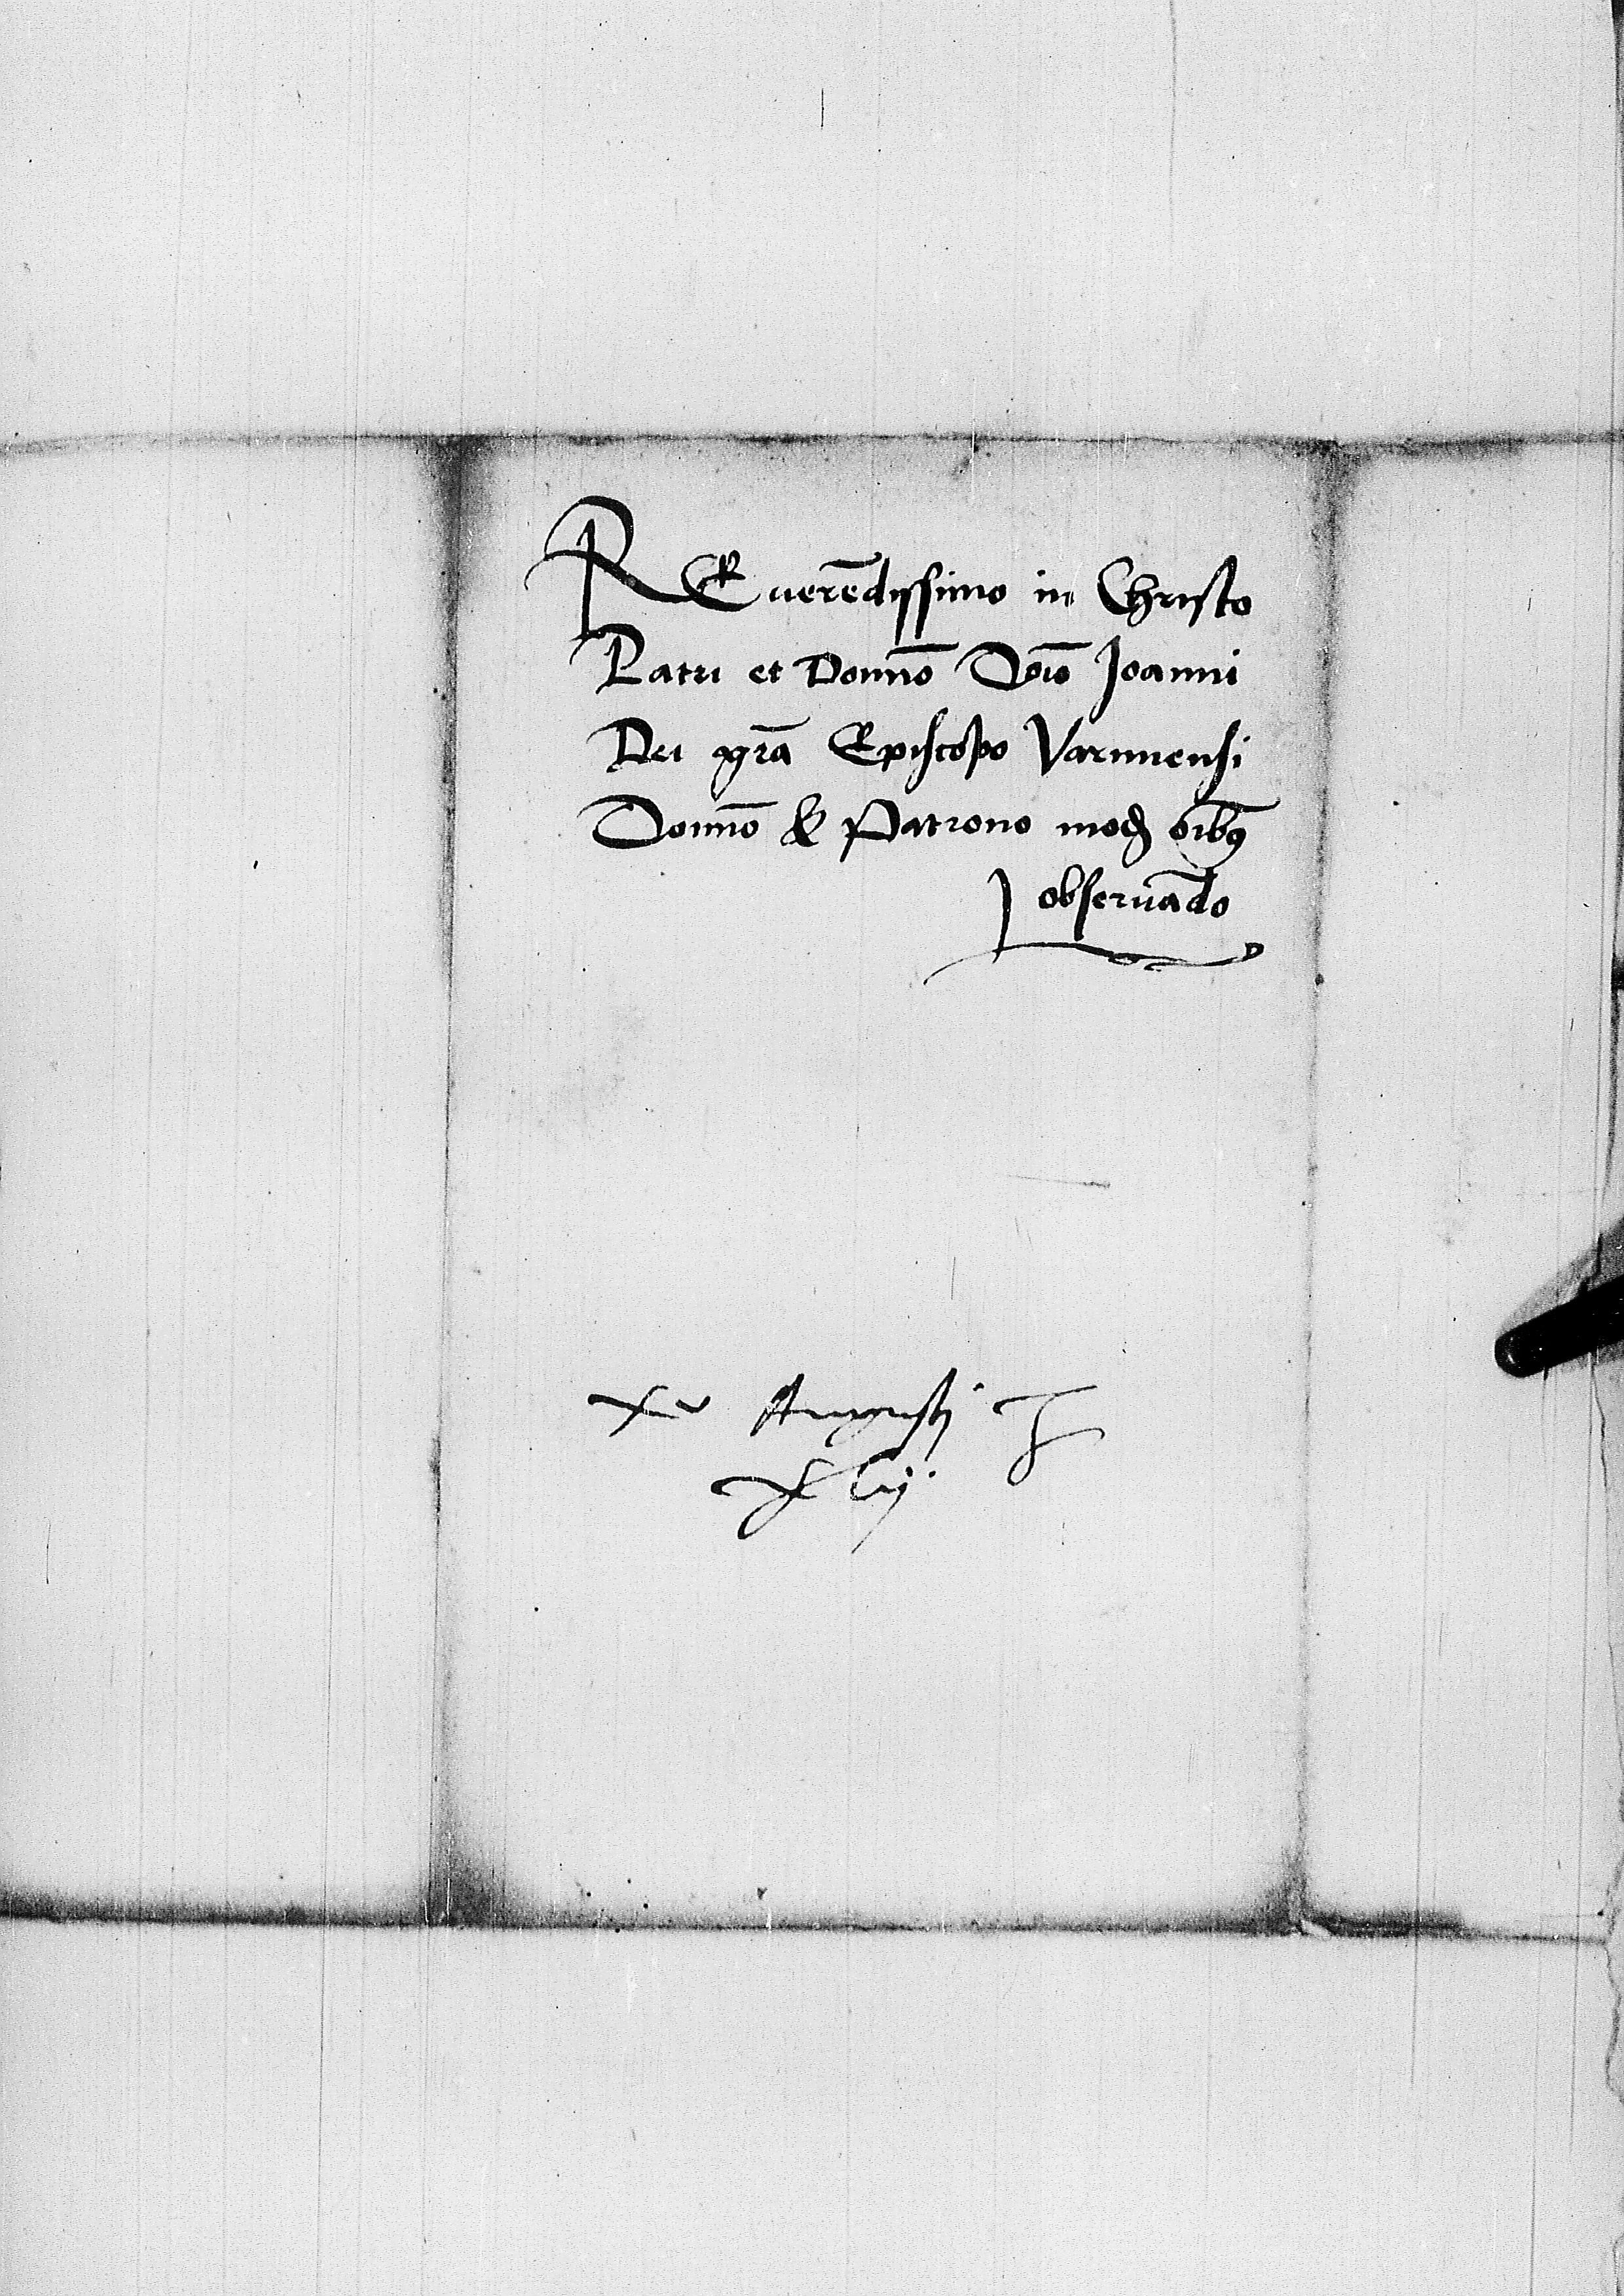 REuerēdissimo in Christo
Patri et Domīo Dn̄o Joanni
Dei grā Episcopo Varmiensi
Domīo & Patrono modꝭ oībꝯ
observādo
xv Augusti
xlij